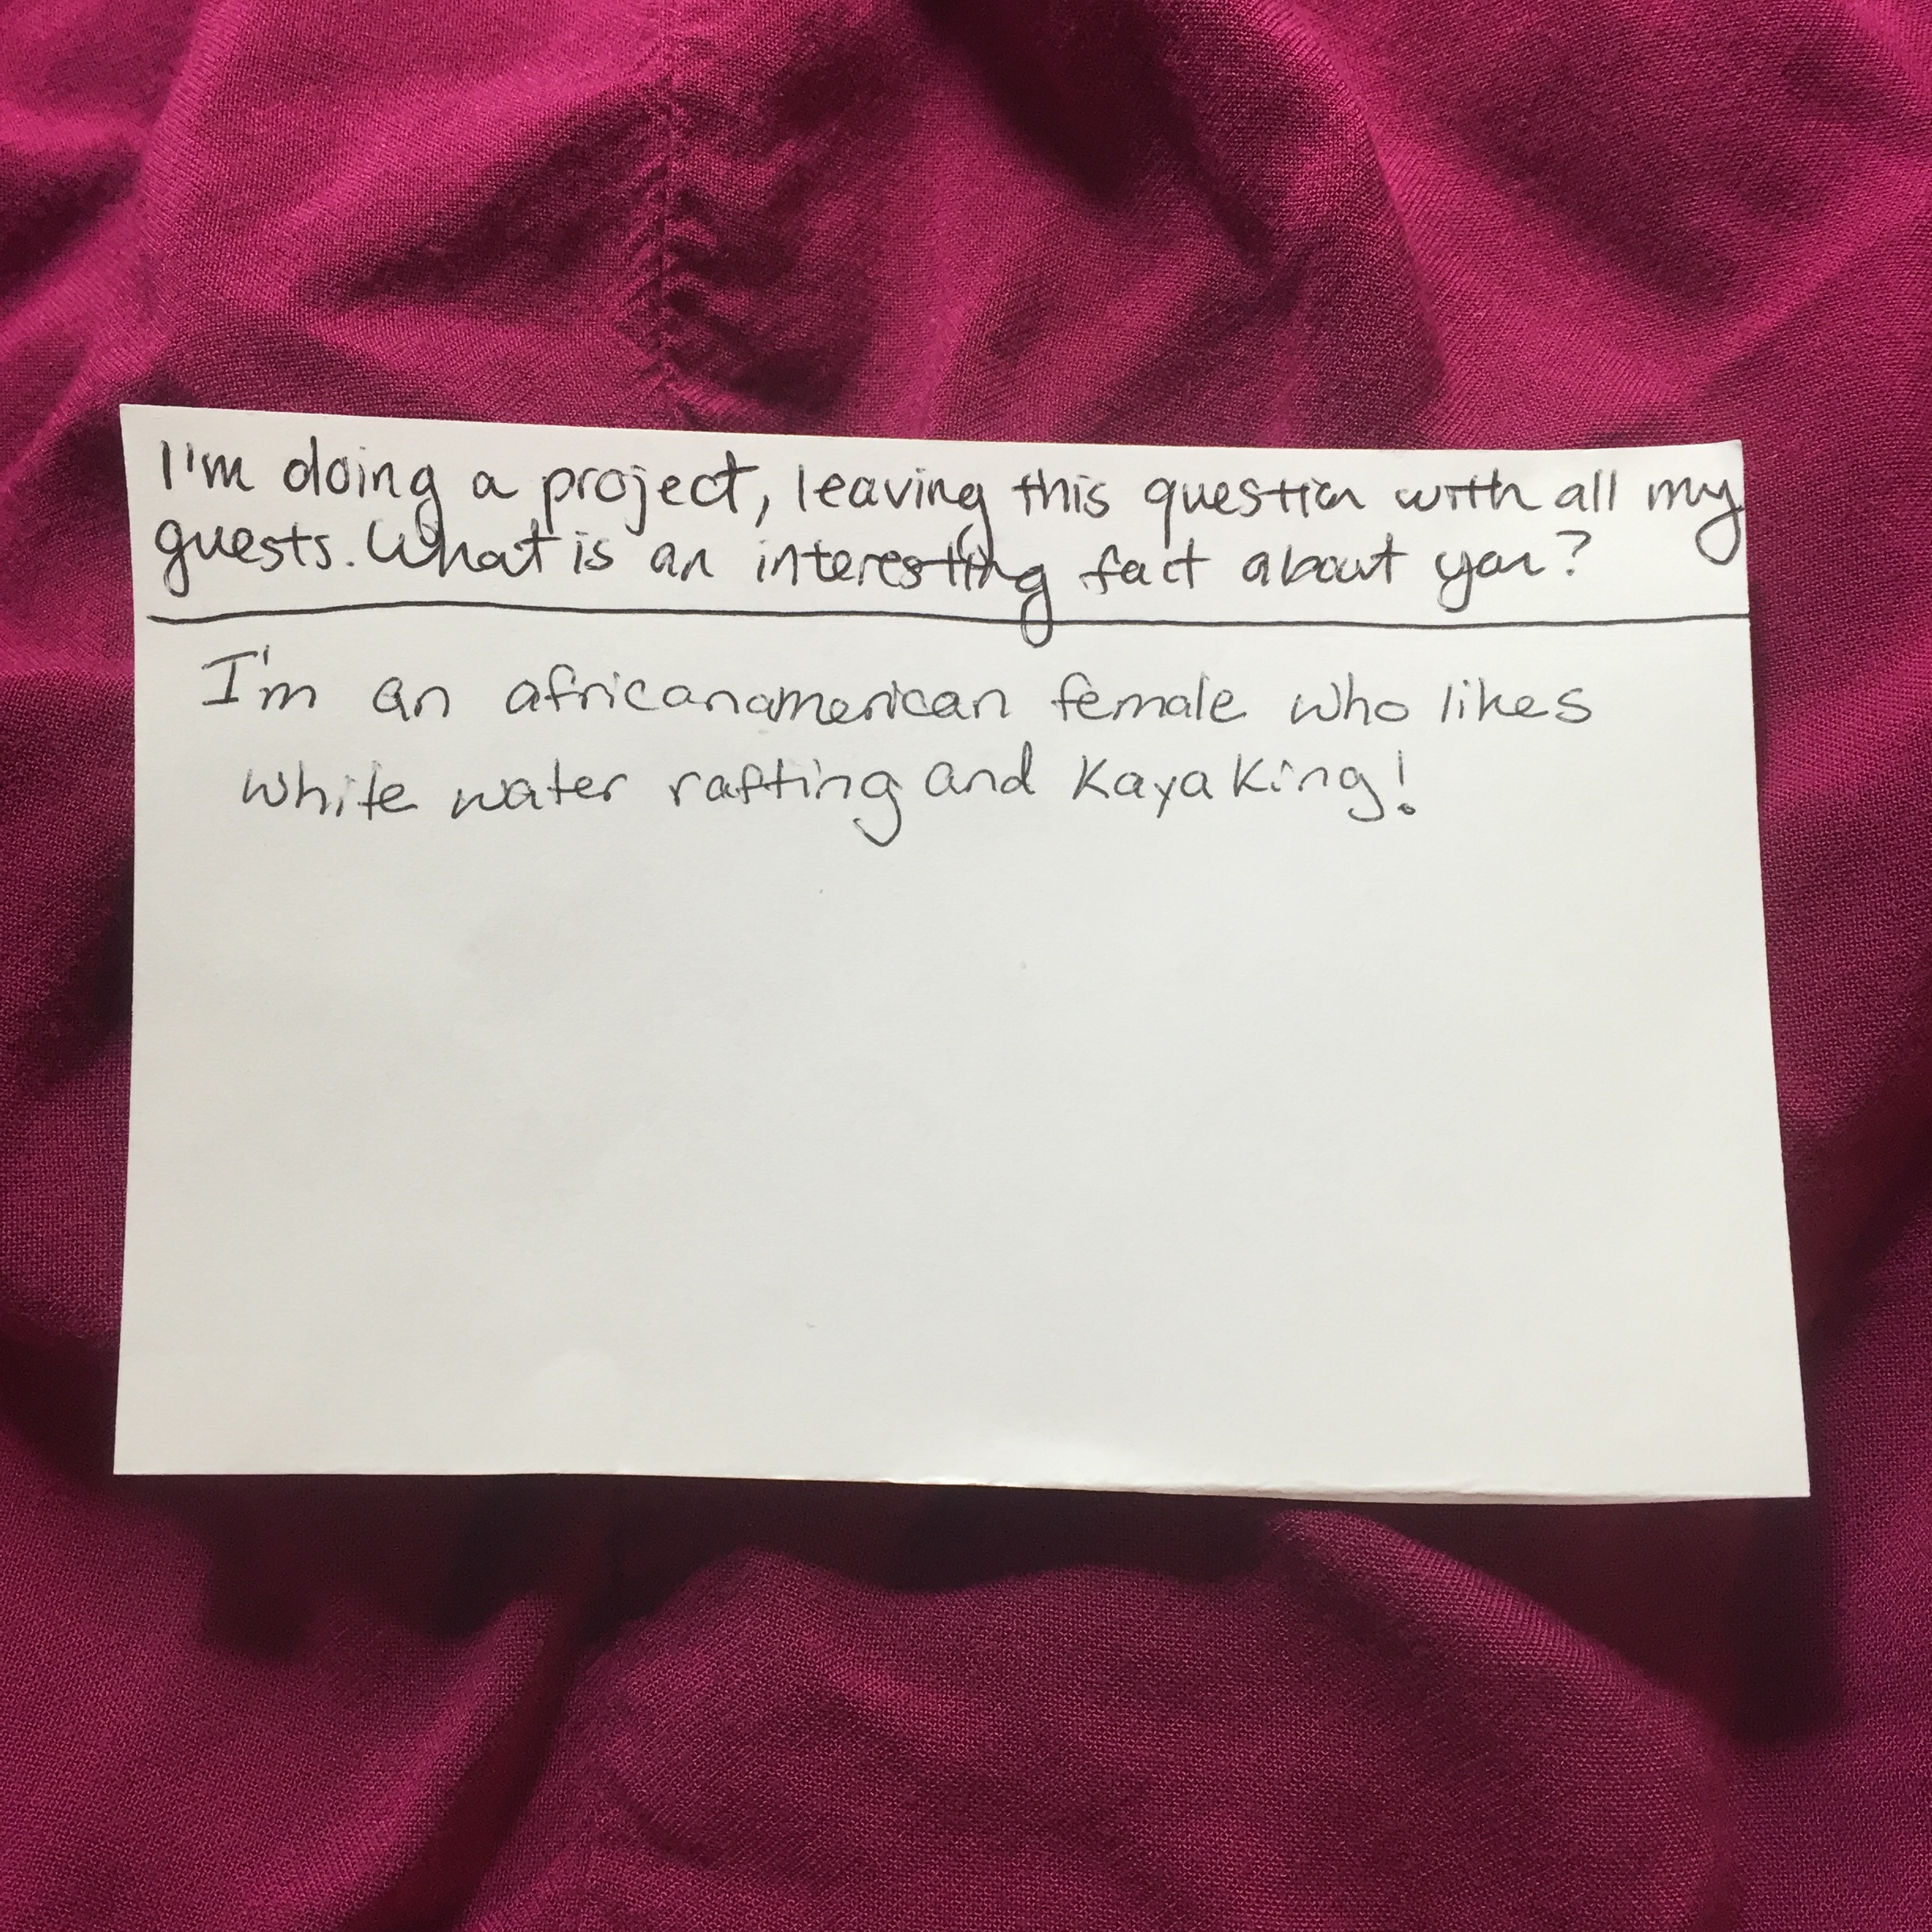 I'm doing a project, leaving this question with all my
guests. What is an interesting fact about you?
I'm an africanamerican female who likes
white water rafting and Kayaking!